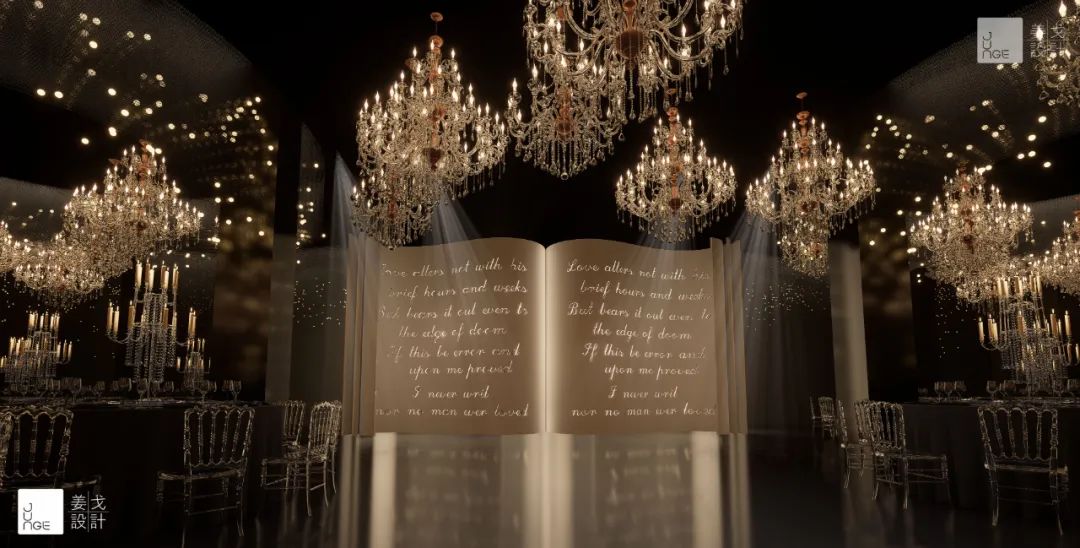 JUNGE
姜戈
設計
Love allers not with his
brief hours and weeks
But bears it out even to
the edge of doom
If this be error and
upon me proved
I never writ
nor no man ever loved
Love allers not with his
brief hours and weeks
But bears it out even to
the edge of doom
If this be error and
upon me proved
I never writ
nor no man ever loved
JUNGE
姜戈
設計